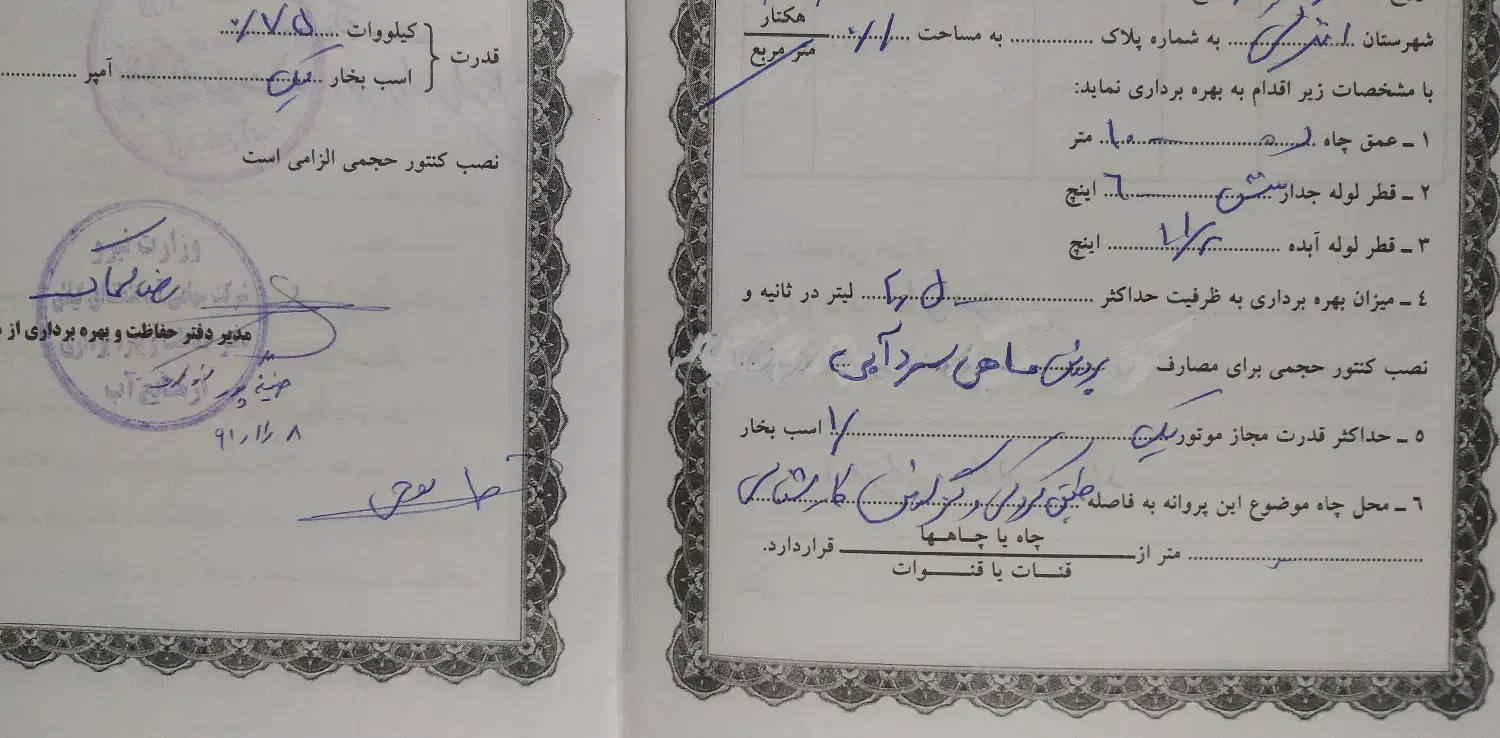 شهرستان انزلی به شماره پلاک به مساحت ۰/۱ هکتار متر مربع
با مشخصات زیر اقدام به بهره برداری نماید:
۱ ـ عمق چاه ده ۱۰ متر
۲ ـ قطر لوله جدار شش ۶ اینچ
۳ ـ قطر لوله آبده اینچ
۴ ـ میزان بهره برداری به ظرفیت حداکثر لیتر در ثانیه و
نصب کنتور حجمی برای مصارف پرورش ماهی سردآبی
۵ ـ حداکثر قدرت مجاز موتور یک ۱ اسب بخار
۶ ـ محل چاه موضوع این پروانه به فاصله طبق کروکی و گزارش کارشناسی
متر از چاه یا چاهها قنات یا قنوات قراردارد.
قدرت
کیلووات ۰/۷۵
اسب بخار یک آمپر
نصب کنتور حجمی الزامی است
وزارت نیرو
مدیر دفتر حفاظت و بهره برداری از
از منابع آب
۹۱/۱۱/۸